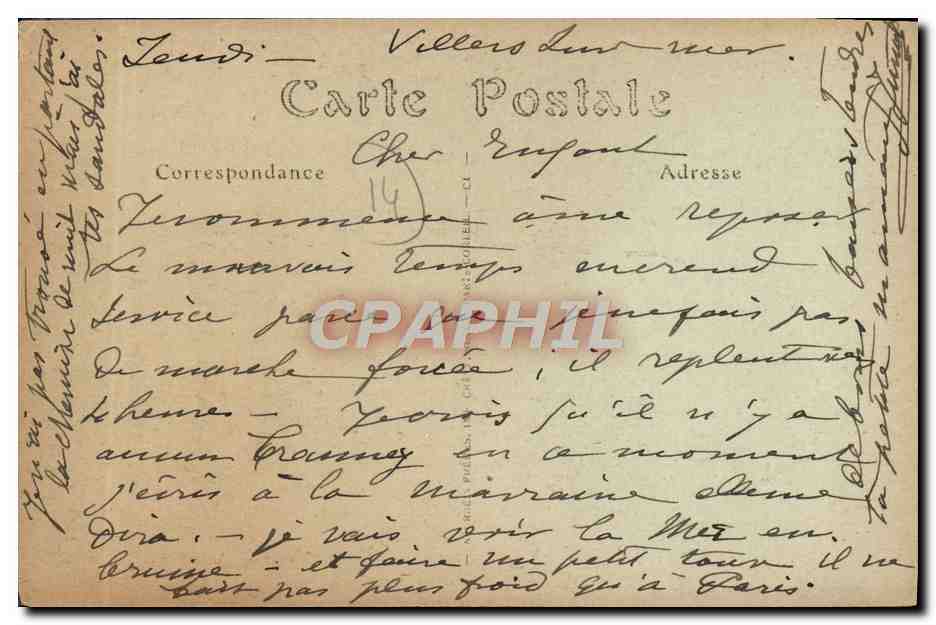 Jeudi — Villers sur mer.
Carte Postale
Cher Enfant
Correspondance
Adresse
14
Je commence à me reposer
Le mauvais temps me rend
service parce que je ne fais pas
De marche forcée, il repleut vers
4 heures — Je crois qu'il n'y a
aucun en ce moment
j'écris à la marraine elle me
Dira. — je vais voir la Mer en
bruine — et faire un petit tour il ne
fait pas plus froid qu'à Paris.
De bons baisers tendres
Ta petite maman
Je n'ai pas trouvé en partant
la chemise de nuit mais j'ai
tes sandales.
CPAPHIL